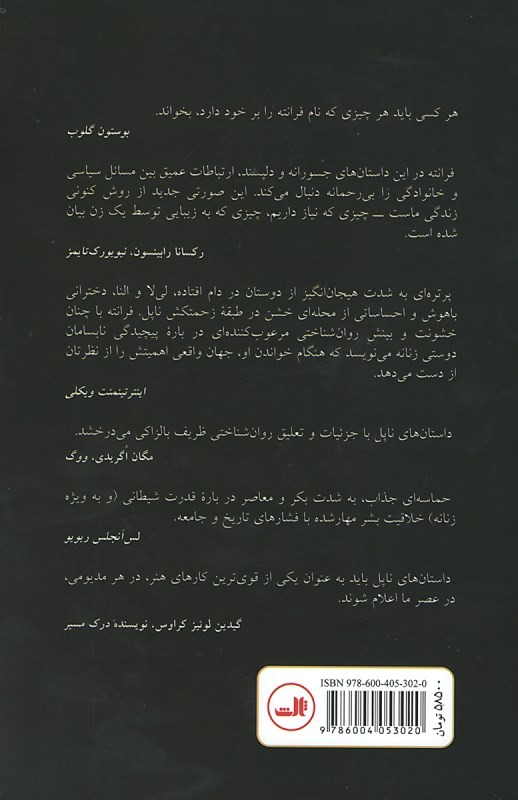 هر کسی باید هر چیزی که نام فرانته را بر خود دارد، بخواند.
بوستون گلوب
فرانته در این داستان‌های جسورانه و دلپسند، ارتباطات عمیق بین مسائل سیاسی
و خانوادگی را بی‌رحمانه دنبال می‌کند. این صورتی جدید از روش کنونی
زندگی ماست ــ چیزی که نیاز داریم، چیزی که به زیبایی توسط یک زن بیان
شده است.
رکسانا رابینسون، نیویورک‌تایمز
پرتره‌ای به شدت هیجان‌انگیز از دوستان در دام افتاده، لی‌لا و النا، دخترانی
باهوش و احساساتی از محله‌ای خشن در طبقهٔ زحمتکش ناپل. فرانته با چنان
خشونت و بینش روان‌شناختی مرعوب‌کننده‌ای در بارهٔ پیچیدگی نابسامان
دوستی زنانه می‌نویسد که هنگام خواندن او، جهان واقعی اهمیتش را از نظرتان
از دست می‌دهد.
اینترتینمنت ویکلی
داستان‌های ناپل با جزئیات و تعلیق روان‌شناختی ظریف بالزاکی می‌درخشد.
مگان اُگریدی، ووگ
حماسه‌ای جذاب، به شدت بکر و معاصر در بارهٔ قدرت شیطانی (و به ویژه
زنانه) خلاقیت بشر مهارشده با فشارهای تاریخ و جامعه.
لس‌آنجلس ریویو
داستان‌های ناپل باید به عنوان یکی از قوی‌ترین کارهای هنر، در هر مدیومی،
در عصر ما اعلام شوند.
گیدین لوئیز کراوس، نویسندهٔ درک مسیر
ISBN 978-600-405-302-0
ثالث
9 786004 053020
۵۸۵۰۰ تومان